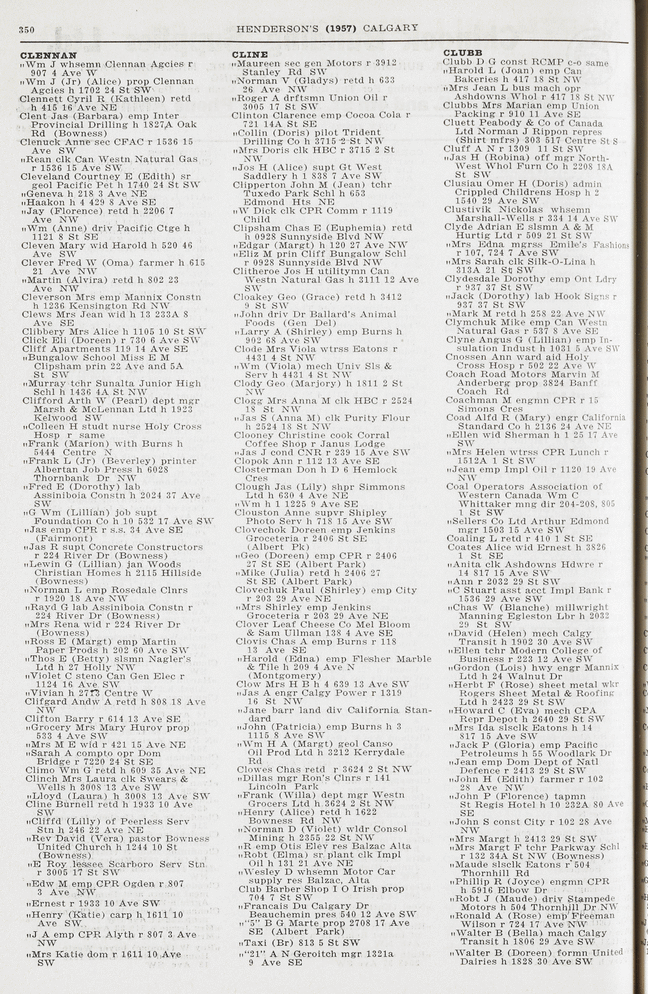 350
HENDERSON'S (1957) CALGARY
CLENNAN
"Wm J whsemn Clennan Agcies r
907 4 Ave W
"Wm J (Jr) (Alice) prop Clennan
Agcies h 1702 24 St SW
Clennett Cyril R (Kathleen) retd
h 415 16 Ave NE
Clent Jas (Barbara) emp Inter
Provincial Drilling h 1827A Oak
Rd (Bowness)
Clenuck Anne sec CFAC r 1536 15
Ave SW
"Rean clk Can Westn Natural Gas
r 1536 15 Ave SW
Cleveland Courtney E (Edith) sr
geol Pacific Pet h 1740 24 St SW
"Geneva h 218 3 Ave NE
"Haakon h 4 429 8 Ave SE
"Jay (Florence) retd h 2206 7
Ave NW
"Wm (Anne) driv Pacific Ctge h
1121 8 St SE
Cleven Mary wid Harold h 520 46
Ave SW
Clever Fred W (Oma) farmer h 615
21 Ave NW
"Martin (Alvira) retd h 802 23
Ave NW
Cleverson Mrs emp Mannix Constn
h 1236 Kensington Rd NW
Clews Mrs Jean wid h 13 233A 8
Ave SE
Clibbery Mrs Alice h 1105 10 St SW
Click Eli (Doreen) r 730 6 Ave SW
Cliff Apartments 119 14 Ave SE
"Bungalow School Miss E M
Clipsham prin 22 Ave and 5A
St SW
"Murray tchr Sunalta Junior High
Schl h 1436 4A St NW
Clifford Arth W (Pearl) dept mgr
Marsh & McLennan Ltd h 1923
Kelwood SW
"Colleen H studt nurse Holy Cross
Hosp r same
"Frank (Marion) with Burns h
5444 Centre N
"Frank L (Jr) (Beverley) printer
Albertan Job Press h 6028
Thornbank Dr NW
"Fred E (Dorothy) lab
Assiniboia Constn h 2024 37 Ave
SW
"G Wm (Lillian) job supt
Foundation Co h 10 532 17 Ave SW
"Jas emp CPR r s.s. 34 Ave SE
(Fairmont)
"Jas R supt Concrete Constructors
r 224 River Dr (Bowness)
"Lewin G (Lillian) jan Woods
Christian Homes h 2115 Hillside
(Bowness)
"Norman L emp Rosedale Clnrs
r 1920 18 Ave NW
"Rayd G lab Assiniboia Constn r
224 River Dr (Bowness)
"Mrs Rena wid r 224 River Dr
(Bowness)
"Ross E (Margt) emp Martin
Paper Prods h 202 60 Ave SW
"Thos E (Betty) slsmn Nagler's
Ltd h 27 Holly NW
"Violet C steno Can Gen Elec r
1124 16 Ave SW
"Vivian h 2773 Centre W
Clifgard Andw A retd h 808 18 Ave
NW
Clifton Barry r 614 13 Ave SE
"Grocery Mrs Mary Hurov prop
533 4 Ave SW
"Mrs M E wid r 421 15 Ave NE
"Sarah A compto opr Dom
Bridge r 7220 24 St SE
Climo Wm G retd h 609 35 Ave NE
Clinch Mrs Laura clk Swears &
Wells h 3008 13 Ave SW
"Lloyd (Laura) h 3008 13 Ave SW
Cline Burnell retd h 1933 10 Ave
SW
"Cliffd (Lilly) of Peerless Serv
Stn h 246 22 Ave NE
"Rev David (Vera) pastor Bowness
United Church h 1244 10 St
(Bowness)
"E Roy lessee Scarboro Serv Stn
r 3005 17 St SW
"Edw M emp CPR Ogden r 807
3 Ave NW
"Ernest r 1933 10 Ave SW
"Henry (Katie) carp h 1611 10
Ave SW
"J A emp CPR Alyth r 807 3 Ave
NW
"Mrs Katie dom r 1611 10 Ave
SW
CLINE
"Maureen sec gen Motors r 3912
Stanley Rd SW
"Norman V (Gladys) retd h 633
26 Ave NW
"Roger A drftsmn Union Oil r
3005 17 St SW
Clinton Clarence emp Cocoa Cola r
721 14A St SE
"Collin (Doris) pilot Trident
Drilling Co h 3715 2 St NW
"Mrs Doris clk HBC r 3715 2 St
NW
"Jos H (Alice) supt Gt West
Saddlery h 1 838 7 Ave SW
Clipperton John M (Jean) tchr
Tuxedo Park Schl h 653
Edmond Hts NE
"W Dick clk CPR Comm r 1119
Child
Clipsham Chas E (Euphemia) retd
h 0928 Sunnyside Blvd NW
"Edgar (Margt) h 120 27 Ave NW
"Eliz M prin Cliff Bungalow Schl
r 0928 Sunnyside Blvd NW
Clitheroe Jos H utilitymn Can
Westn Natural Gas h 3111 12 Ave
SW
Cloakey Geo (Grace) retd h 3412
9 St SW
"John driv Dr Ballard's Animal
Foods (Gen Del)
"Larry A (Shirley) emp Burns h
902 68 Ave SW
Clode Mrs Viola wtrss Eatons r
4431 4 St NW
"Wm (Viola) mech Univ Sls &
Serv h 4431 4 St NW
Clody Geo (Marjory) h 1811 2 St
NW
Clogg Mrs Anna M clk HBC r 2524
18 St NW
"Jas S (Anna M) clk Purity Flour
h 2524 18 St NW
Clooney Christine cook Corral
Coffee Shop r Janus Lodge
"Jas J cond CNR r 239 15 Ave SW
Clopok Ann r 112 13 Ave SE
Closterman Don h D 6 Hemlock
Cres
Clough Jas (Lily) shpr Simmons
Ltd h 630 4 Ave NE
"Wm h 1 1225 9 Ave SE
Clouston Anne supvr Shipley
Photo Serv h 718 15 Ave SW
Clovechok Doreen emp Jenkins
Groceteria r 2406 St SE
(Albert Pk)
"Geo (Doreen) emp CPR r 2406
27 St SE (Albert Park)
"Mike (Julia) retd h 2406 27
St SE (Albert Park)
Clovechuk Paul (Shirley) emp City
r 203 29 Ave NE
"Mrs Shirley emp Jenkins
Groceteria r 203 29 Ave NE
Clover Leaf Cheese Co Mel Bloom
& Sam Ullman 138 4 Ave SE
Clovis Chas A emp Burns r 118
13 Ave SE
"Harold (Edna) emp Flesher Marble
& Tile h 209 4 Ave N
(Montgomery)
Clow Mrs H B h 4 639 13 Ave SW
"Jas A engr Calgy Power r 1319
16 St NW
"Jane barr land div California Stan-
dard
"John (Patricia) emp Burns h 3
1115 8 Ave SW
"Wm H A (Margt) geol Canso
Oil Prod Ltd h 3212 Kerrydale
Rd
Clowes Chas retd r 3624 2 St NW
"Dillas mgr Ron's Clnrs r 141
Lincoln Park
"Frank (Willa) dept mgr Westn
Grocers Ltd h 3624 2 St NW
"Henry (Alice) retd h 1622
Bowness Rd NW
"Norman D (Violet) wldr Consol
Mining h 2355 22 St NW
"R emp Otis Elev res Balzac Alta
"Robt (Elma) sr plant clk Impl
Oil h 131 21 Ave NE
"Wesley D whsemn Motor Car
supply res Balzac, Alta
Club Barber Shop I O Irish prop
704 7 St SW
"Francais Du Calgary Dr
Beauchemin pres 540 12 Ave SW
"'5" B G Marte prop 2708 17 Ave
SE (Albert Park)
"Taxi (Br) 813 5 St SW
""21" A N Geroitch mgr 1321a
9 Ave SE
CLUBB
Clubb D G const RCMP c-o same
"Harold L (Joan) emp Can
Bakeries h 417 18 St NW
"Mrs Jean L bus mach opr
Ashdowns Whol r 417 18 St NW
Clubbs Mrs Marian emp Union
Packing r 910 11 Ave SE
Cluett Peabody & Co of Canada
Ltd Norman J Rippon repres
(Shirt mfrs) 303 517 Centre St S
Cluff A N r 1309 11 St SW
"Jas H (Robina) off mgr North-
West Whol Furn Co h 2208 18A
St SW
Clusiau Omer H (Doris) admin
Crippled Childrens Hosp h 2
1540 29 Ave SW
Clustvik Nickolas whsemn
Marshall-Wells r 334 14 Ave SW
Clyde Adrian E slsmn A & M
Hurtig Ltd r 509 21 St SW
"Mrs Edna mgrss Emile's Fashions
r 107, 724 7 Ave SW
"Mrs Sarah clk Silk-O-Lina h
313A 21 St SW
Clydesdale Dorothy emp Ont Ldry
r 937 37 St SW
"Jack (Dorothy) lab Hook Signs r
937 37 St SW
"Mark M retd h 258 22 Ave NW
Clymchuk Mike emp Can Westn
Natural Gas r 537 8 Ave SE
Clyne Angus G (Lillian) emp In-
sulation Indust h 1031 5 Ave SW
Cnossen Ann ward aid Holy
Cross Hosp r 502 22 Ave W
Coach Road Motors Marvin M
Anderberg prop 3824 Banff
Coach Rd
Coachman M engmn CPR r 15
Simons Cres
Coad Alfd R (Mary) engr California
Standard Co h 2136 24 Ave NW
"Ellen wid Sherman h 1 25 17 Ave
SW
"Mrs Helen wtrss CPR Lunch r
1512A 1 St SW
"Jean emp Impl Oil r 1120 19 Ave
NW
Coal Operators Association of
Western Canada Wm C
Whittaker mng dir 204-208, 805
1 St SW
"Sellers Co Ltd Arthur Edmond
mgr 1503 15 Ave SW
Coaling L retd r 410 1 St SE
Coates Alice wid Ernest h 3826
1 St SE
"Anita clk Ashdowns Hdwre r
14 817 15 Ave SW
"Ann r 2032 29 St SW
"C Stuart asst acct Impl Bank r
1536 29 Ave SW
"Chas W (Blanche) millwright
Manning Egleston Lbr h 2032
29 St SW
"David (Helen) mech Calgy
Transit h 1902 30 Ave SW
"Ellen tchr Modern College of
Business r 223 12 Ave SW
"Gordon (Lois) hwy engr Mannix
Ltd h 24 Walnut Dr
"Herbt F (Rose) sheet metal wkr
Rogers Sheet Metal & Roofing
Ltd h 2423 29 St SW
"Howard C (Eva) mech CPA
Repr Depot h 2640 29 St SW
"Mrs Ida slsclk Eatons h 14
817 15 Ave SW
"Jack P (Gloria) emp Pacific
Petroleums h 55 Woodlark Dr
"Jean emp Dom Dept of Natl
Defence r 2413 29 St SW
"John H (Edith) farmer r 102
28 Ave NW
"John P (Florence) tapmn
St Regis Hotel h 10 232A 80 Ave
SE
"John S const City r 102 28 Ave
NW
"Mrs Margt h 2413 29 St SW
"Mrs Margt F tchr Parkway Schl
r 132 34A St NW (Bowness)
"Maude slsclk Eatons r 504
Thornhill Rd
"Phillip R (Joyce) engmn CPR
h 5916 Elbow Dr
"Robt J (Maude) driv Stampede
Motors h 504 Thornhill Dr NW
"Ronald A (Rose) emp Freeman
Wilson r 724 17 Ave NW
"Walter B (Bella) mach Calgy
Transit h 1806 29 Ave SW
"Walter B (Doreen) formn United
Dairies h 1828 30 Ave SW